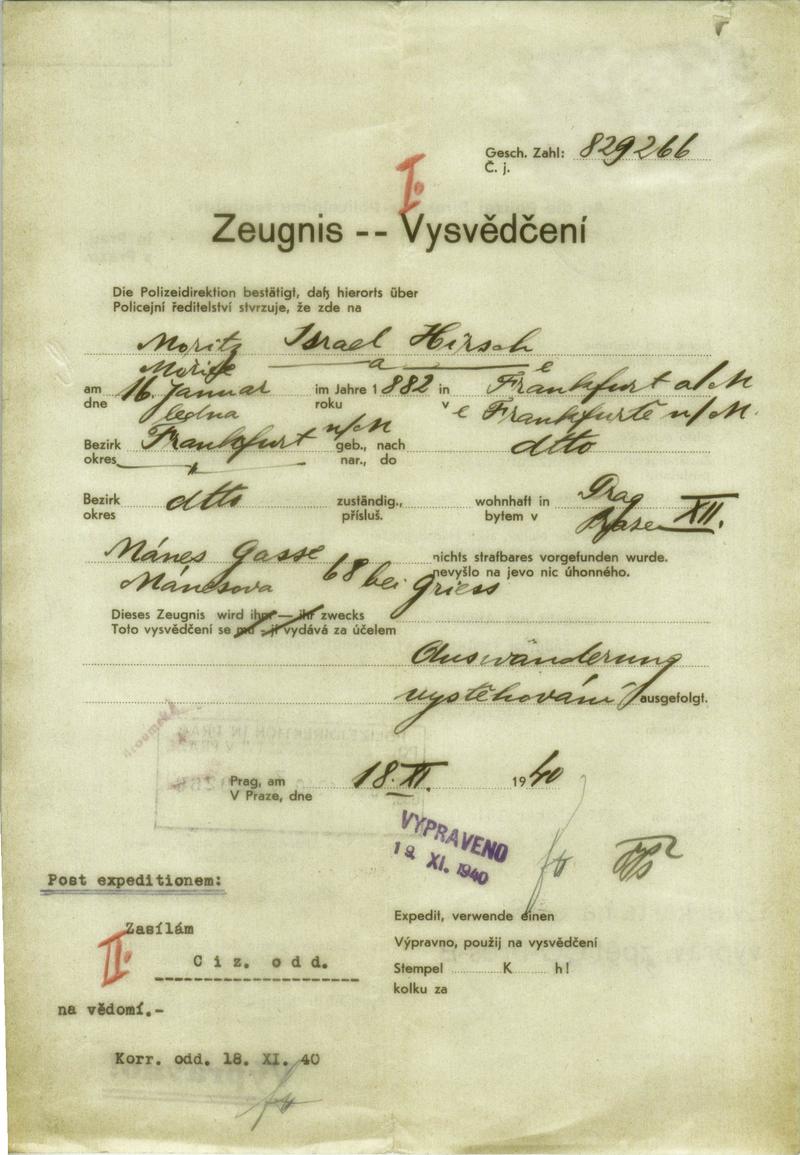 Gesch. Zahl: 829266
Č. j.
I.
Zeugnis -- Vysvědčení
Die Polizeidirektion bestätigt, daß hierorts über
Policejní ředitelství stvrzuje, že zde na
Moritz Israel Hirsch
a
am 16. Januar im Jahre 1882 in Frankfurt a/M
dne ledna roku v e Frankfurtě n/M.
Bezirk Frankfurt n/M geb., nach dtto
okres " nar., do
Bezirk dtto zuständig., wohnhaft in Prag XII.
okres přísluš. bytem v Praze
Mánes Gasse 68 bei Griess nichts strafbares vorgefunden wurde.
Mánesova nevyšlo na jevo nic úhonného.
Dieses Zeugnis wird ihm — ihr zwecks
Toto vysvědčení se mu - jí vydává za účelem
Auswänderung
vystěhování ausgefolgt.
Prag, am 18. XI. 1940
V Praze, dne
VYPRAVENO
19. XI. 1940
Post expeditionem:
Zasílám
II.
Ciz. odd.
na vědomí.-
Korr. odd. 18. XI. 40
Expedit, verwende einen
Výpravno, použij na vysvědčení
Stempel K h!
kolku za